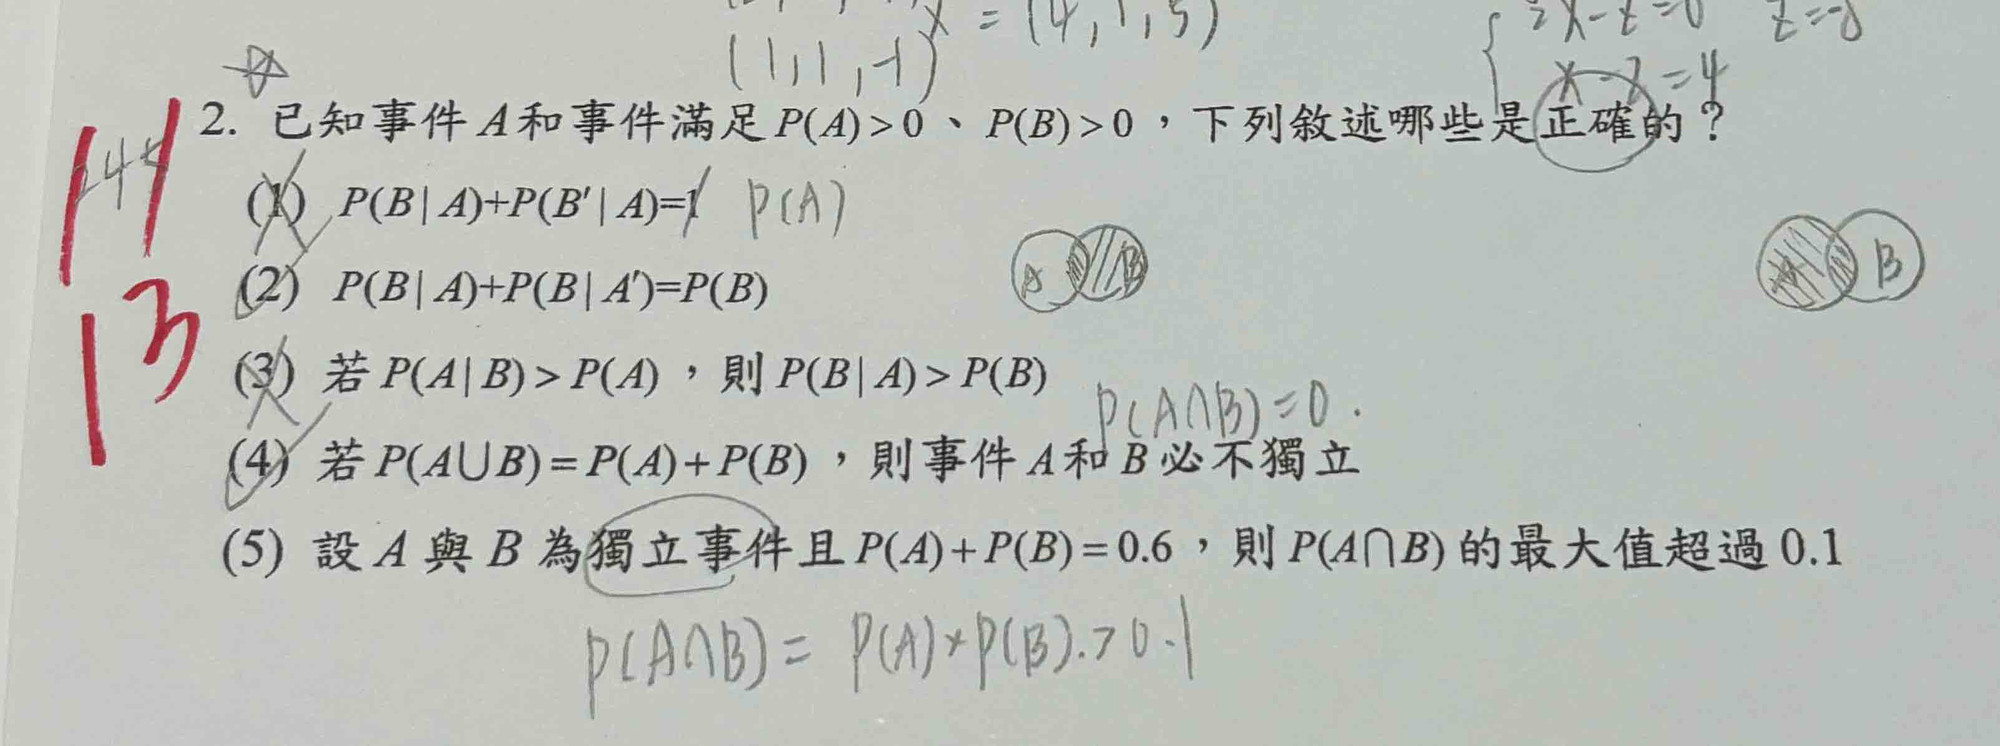 x = (4, 1, 5)
(1, 1, -1)
x - z = 4
2. 已知事件 A 和事件滿足 P(A) > 0、P(B) > 0，下列敘述哪些是正確的？
(1) P(B | A)+P(B′ | A)=1 P(A)
(2) P(B | A)+P(B | A′)=P(B)
A B
B
(3) 若 P(A | B) > P(A)，則 P(B | A) > P(B)
P(A∩B)=0.
(4) 若 P(A∪B) = P(A) + P(B)，則事件 A 和 B 必不獨立
(5) 設 A 與 B 為獨立事件且 P(A) + P(B) = 0.6，則 P(A∩B) 的最大值超過 0.1
P(A∩B) = P(A)×P(B).>0.1
14
13